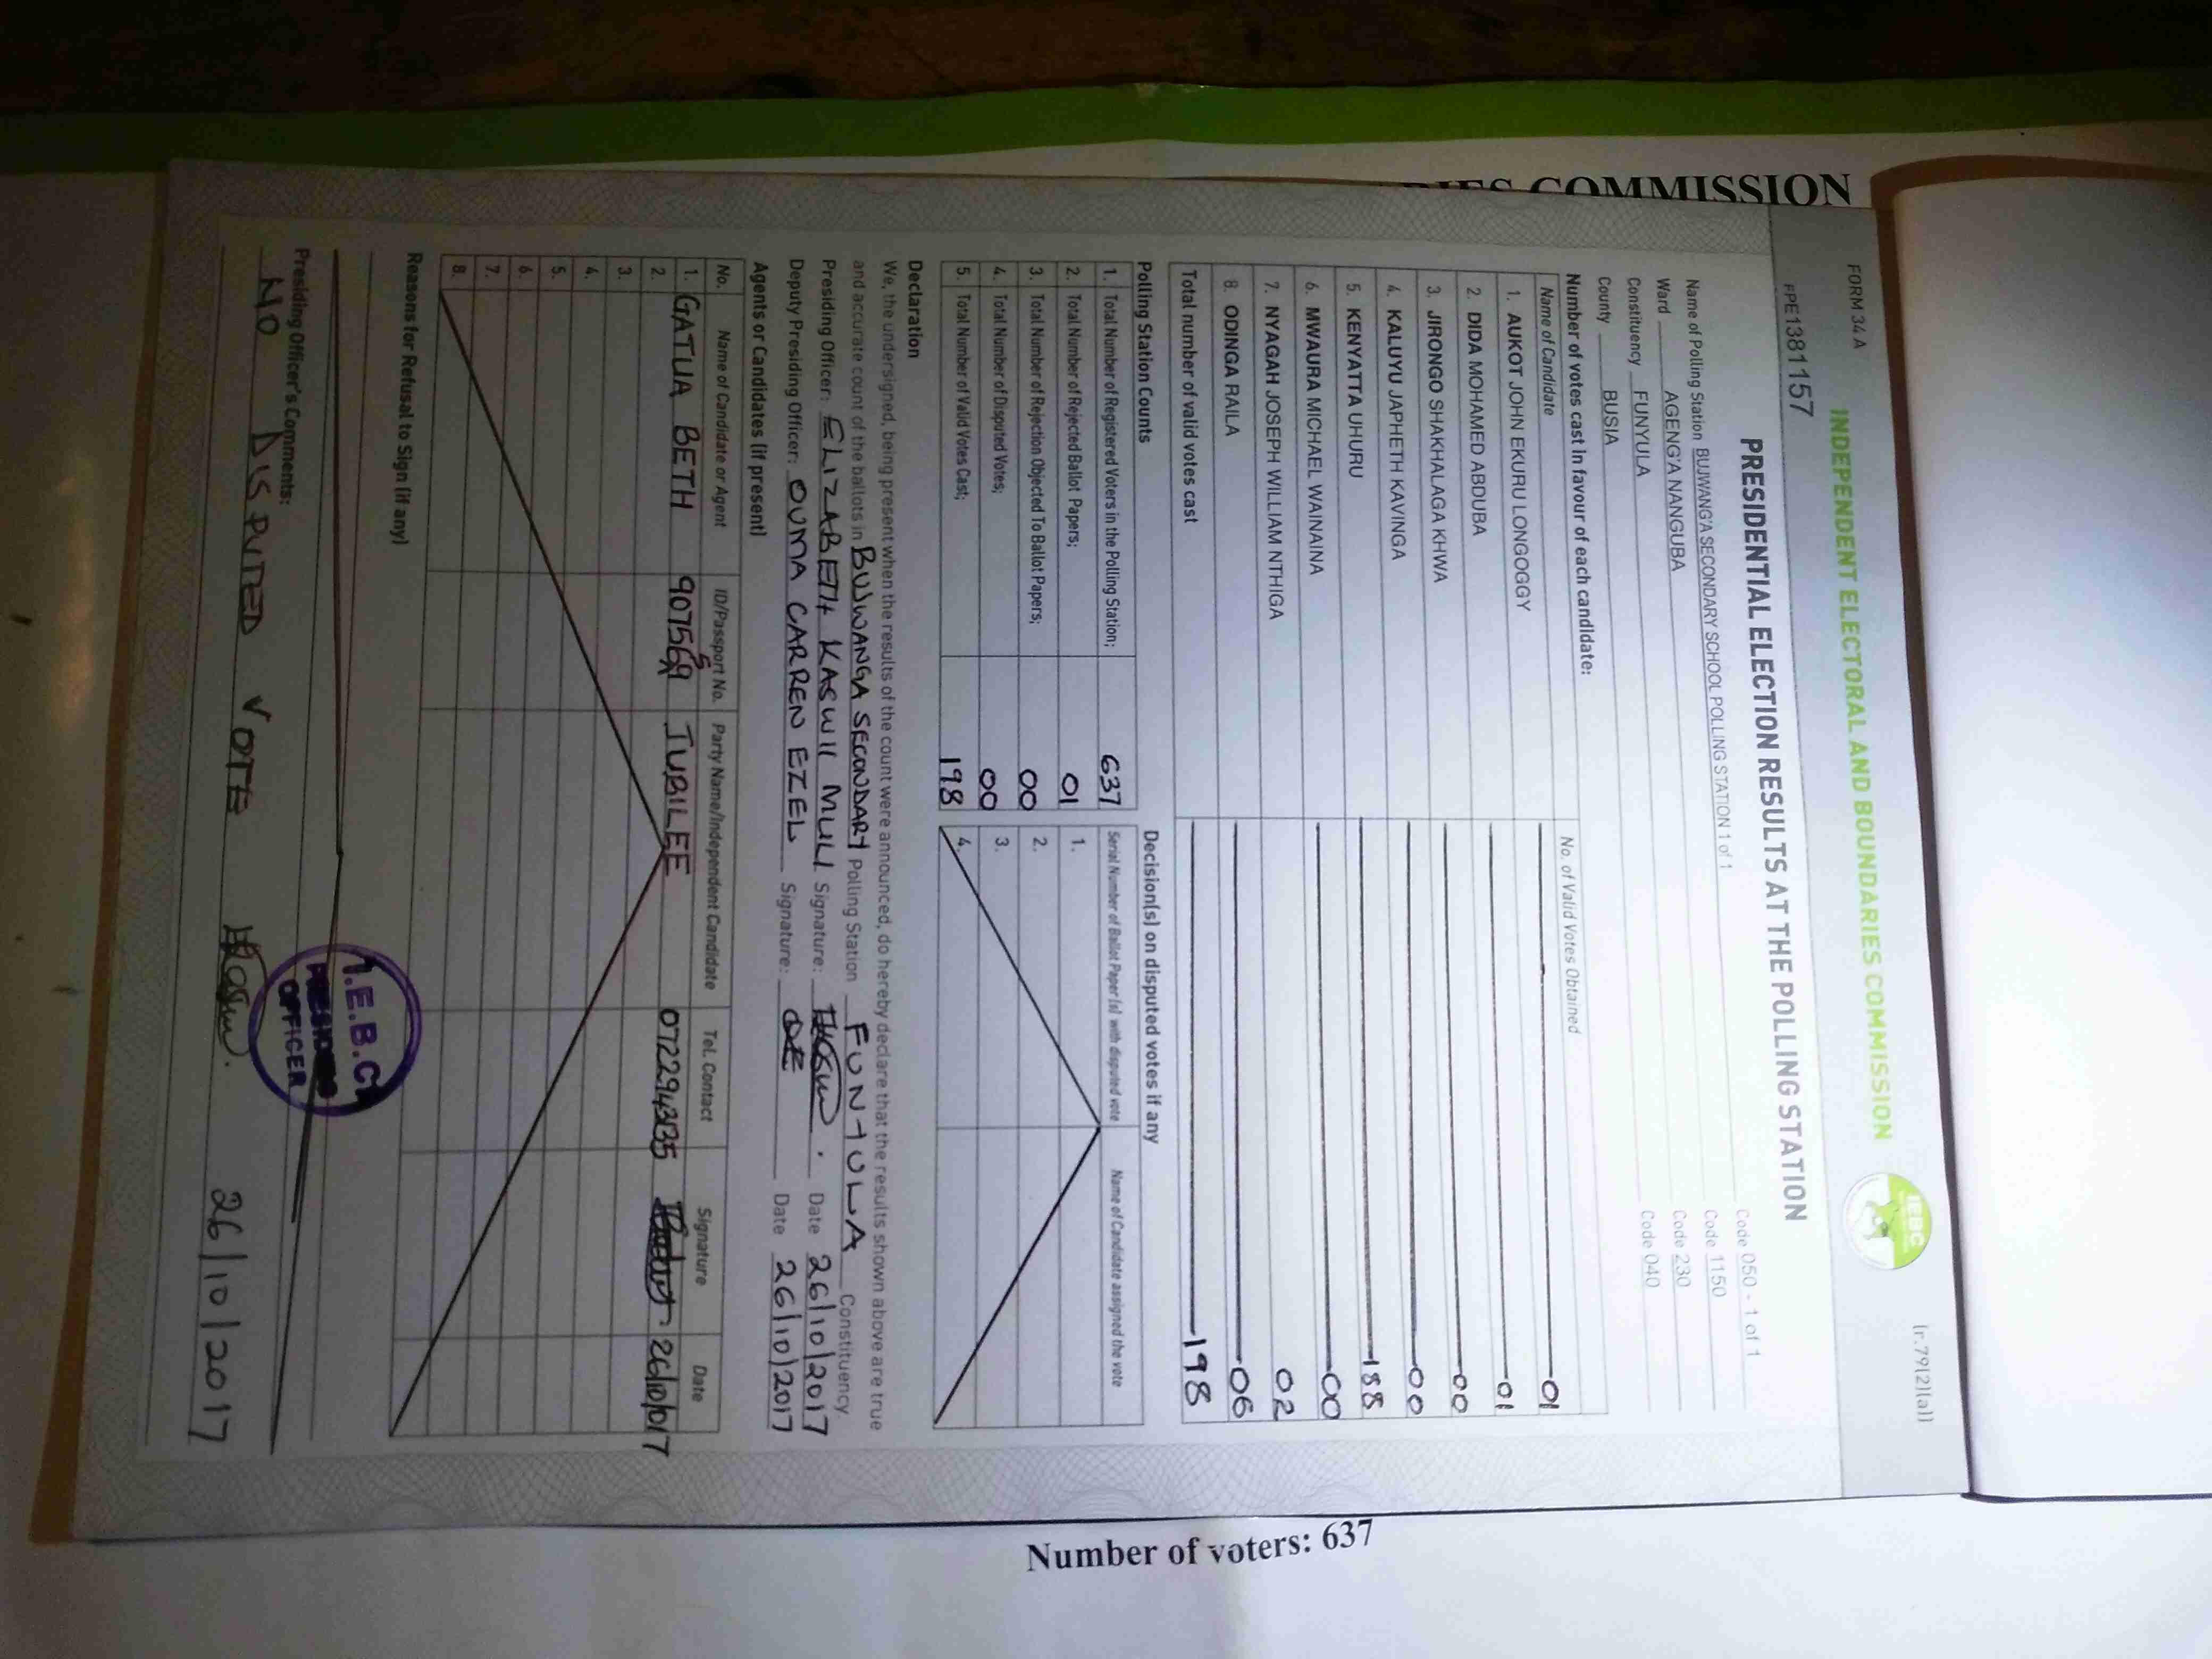 IES COMMISSION
FORM 34 A
(r.79(2)(a))
INDEPENDENT ELECTORAL AND BOUNDARIES COMMISSION
IEBC
PE1381157
PRESIDENTIAL ELECTION RESULTS AT THE POLLING STATION
Name of Polling Station BUJWANG'A SECONDARY SCHOOL POLLING STATION 1 of 1 Code 050 - 1 of 1
Ward AGENG'A NANGUBA Code 1150
Constituency FUNYULA Code 230
County BUSIA Code 040
Number of votes cast in favour of each candidate:
Name of Candidate No. of Valid Votes Obtained
1. AUKOT JOHN EKURU LONGOGGY 01
2. DIDA MOHAMED ABDUBA 01
3. JIRONGO SHAKHALAGA KHWA 00
4. KALUYU JAPHETH KAVINGA 00
5. KENYATTA UHURU 188
6. MWAURA MICHAEL WAINAINA 00
7. NYAGAH JOSEPH WILLIAM NTHIGA 02
8. ODINGA RAILA 06
Total number of valid votes cast 198
Polling Station Counts
1. Total Number of Registered Voters in the Polling Station; 637
2. Total Number of Rejected Ballot Papers; 01
3. Total Number of Rejection Objected To Ballot Papers; 00
4. Total Number of Disputed Votes; 00
5. Total Number of Valid Votes Cast; 198
Decision(s) on disputed votes if any
Serial Number of Ballot Paper (s) with disputed vote Name of Candidate assigned the vote
1.
2.
3.
4.
Declaration
We, the undersigned, being present when the results of the count were announced, do hereby declare that the results shown above are true
and accurate count of the ballots in BUJWANGA SECONDARY Polling Station FUNYULA Constituency
Presiding Officer: ELIZABETH KASWII MULI Signature: Date 26/10/2017
Deputy Presiding Officer: OUMA CARREN EZEL Signature: Date 26/10/2017
Agents or Candidates (if present)
No. Name of Candidate or Agent ID/Passport No. Party Name/Independent Candidate Tel. Contact Signature Date
1. GATUA BETH JUBILEE
2.
3.
4.
5.
6.
7.
8.
Reasons for Refusal to Sign (if any)
Presiding Officer's Comments:
NO DISPUTED VOTE 26/10/2017
I.E.B.C
PRESIDING
OFFICER
Number of voters: 637